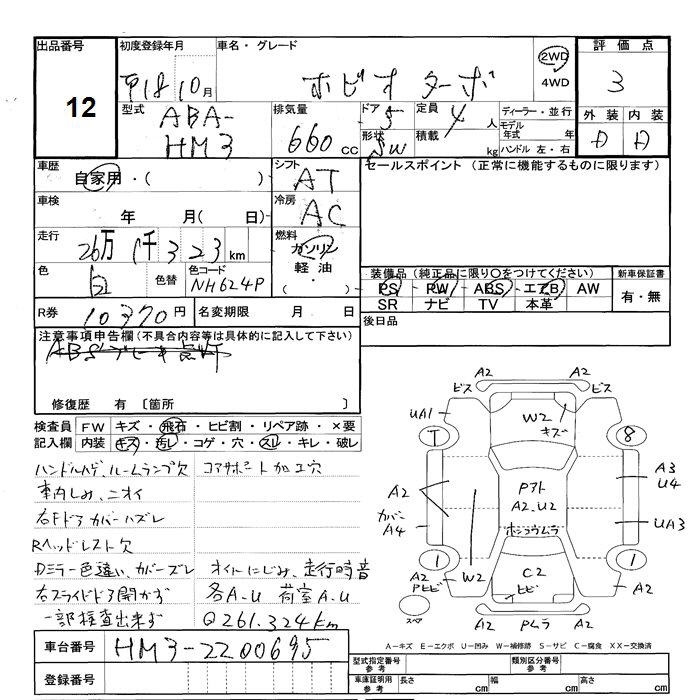 出品番号 初度登録年月 車名・グレード 評価点
12 平18.10月 ホビオ ターボ 2WD 4WD 3
型式 ABA-HM3 排気量 660cc ドア 5 形状 SW 定員 4人 積載 kg ディーラー・並行 モデル年式 年 ハンドル 左・右 外装 内装
D D
車歴 自家用・( ) シフト AT セールスポイント (正常に機能するものに限ります)
車検 年 月( 日) 冷房 AC
走行 26万1千323km 燃料 ガソリン 軽油・( )
色 白 色替 色コード NH624P 装備品(純正品に限り○をつけてください) 新車保証書
PS PW ABS エアB AW 有・無
SR ナビ TV 本革
R券 10370円 名変期限 月 日 後日品
注意事項申告欄(不具合内容等は具体的に記入して下さい)
修復歴 有 〔箇所 〕
検査員 FW キズ・飛石・ヒビ割・リペア跡・×要
記入欄 内装 キズ・汚レ・コゲ・穴・スレ・キレ・破レ
ハンドルハゲ、ルームランプ欠 コアサポート加工穴
車内しみ、ニオイ
右Fドアカバーハズレ
Rヘッドレスト欠
Dミラー色違い、カバーズレ オイルにじみ、走行時音
右スライドドア開かず 各A.U 荷室A.U
一部検査出来ず Q261.324km
車台番号 HM3-2200695
登録番号
A2
ビス A2 ビス
UA1 W2 キズ
T 8
A2 Pアト A2.U2 A3 U4
カバー A4 ホンコウムラ UA3
1 1
A2 PヒビW2 C2 ヒビ A2
スペア A2 PムラA2
A-キズ E-エクボ U-凹み W-補修跡 S-サビ C-腐食 XX-交換済
型式指定番号 参考 類別区分番号 参考
車庫証明用 参考 長さ cm 幅 cm 高さ cm